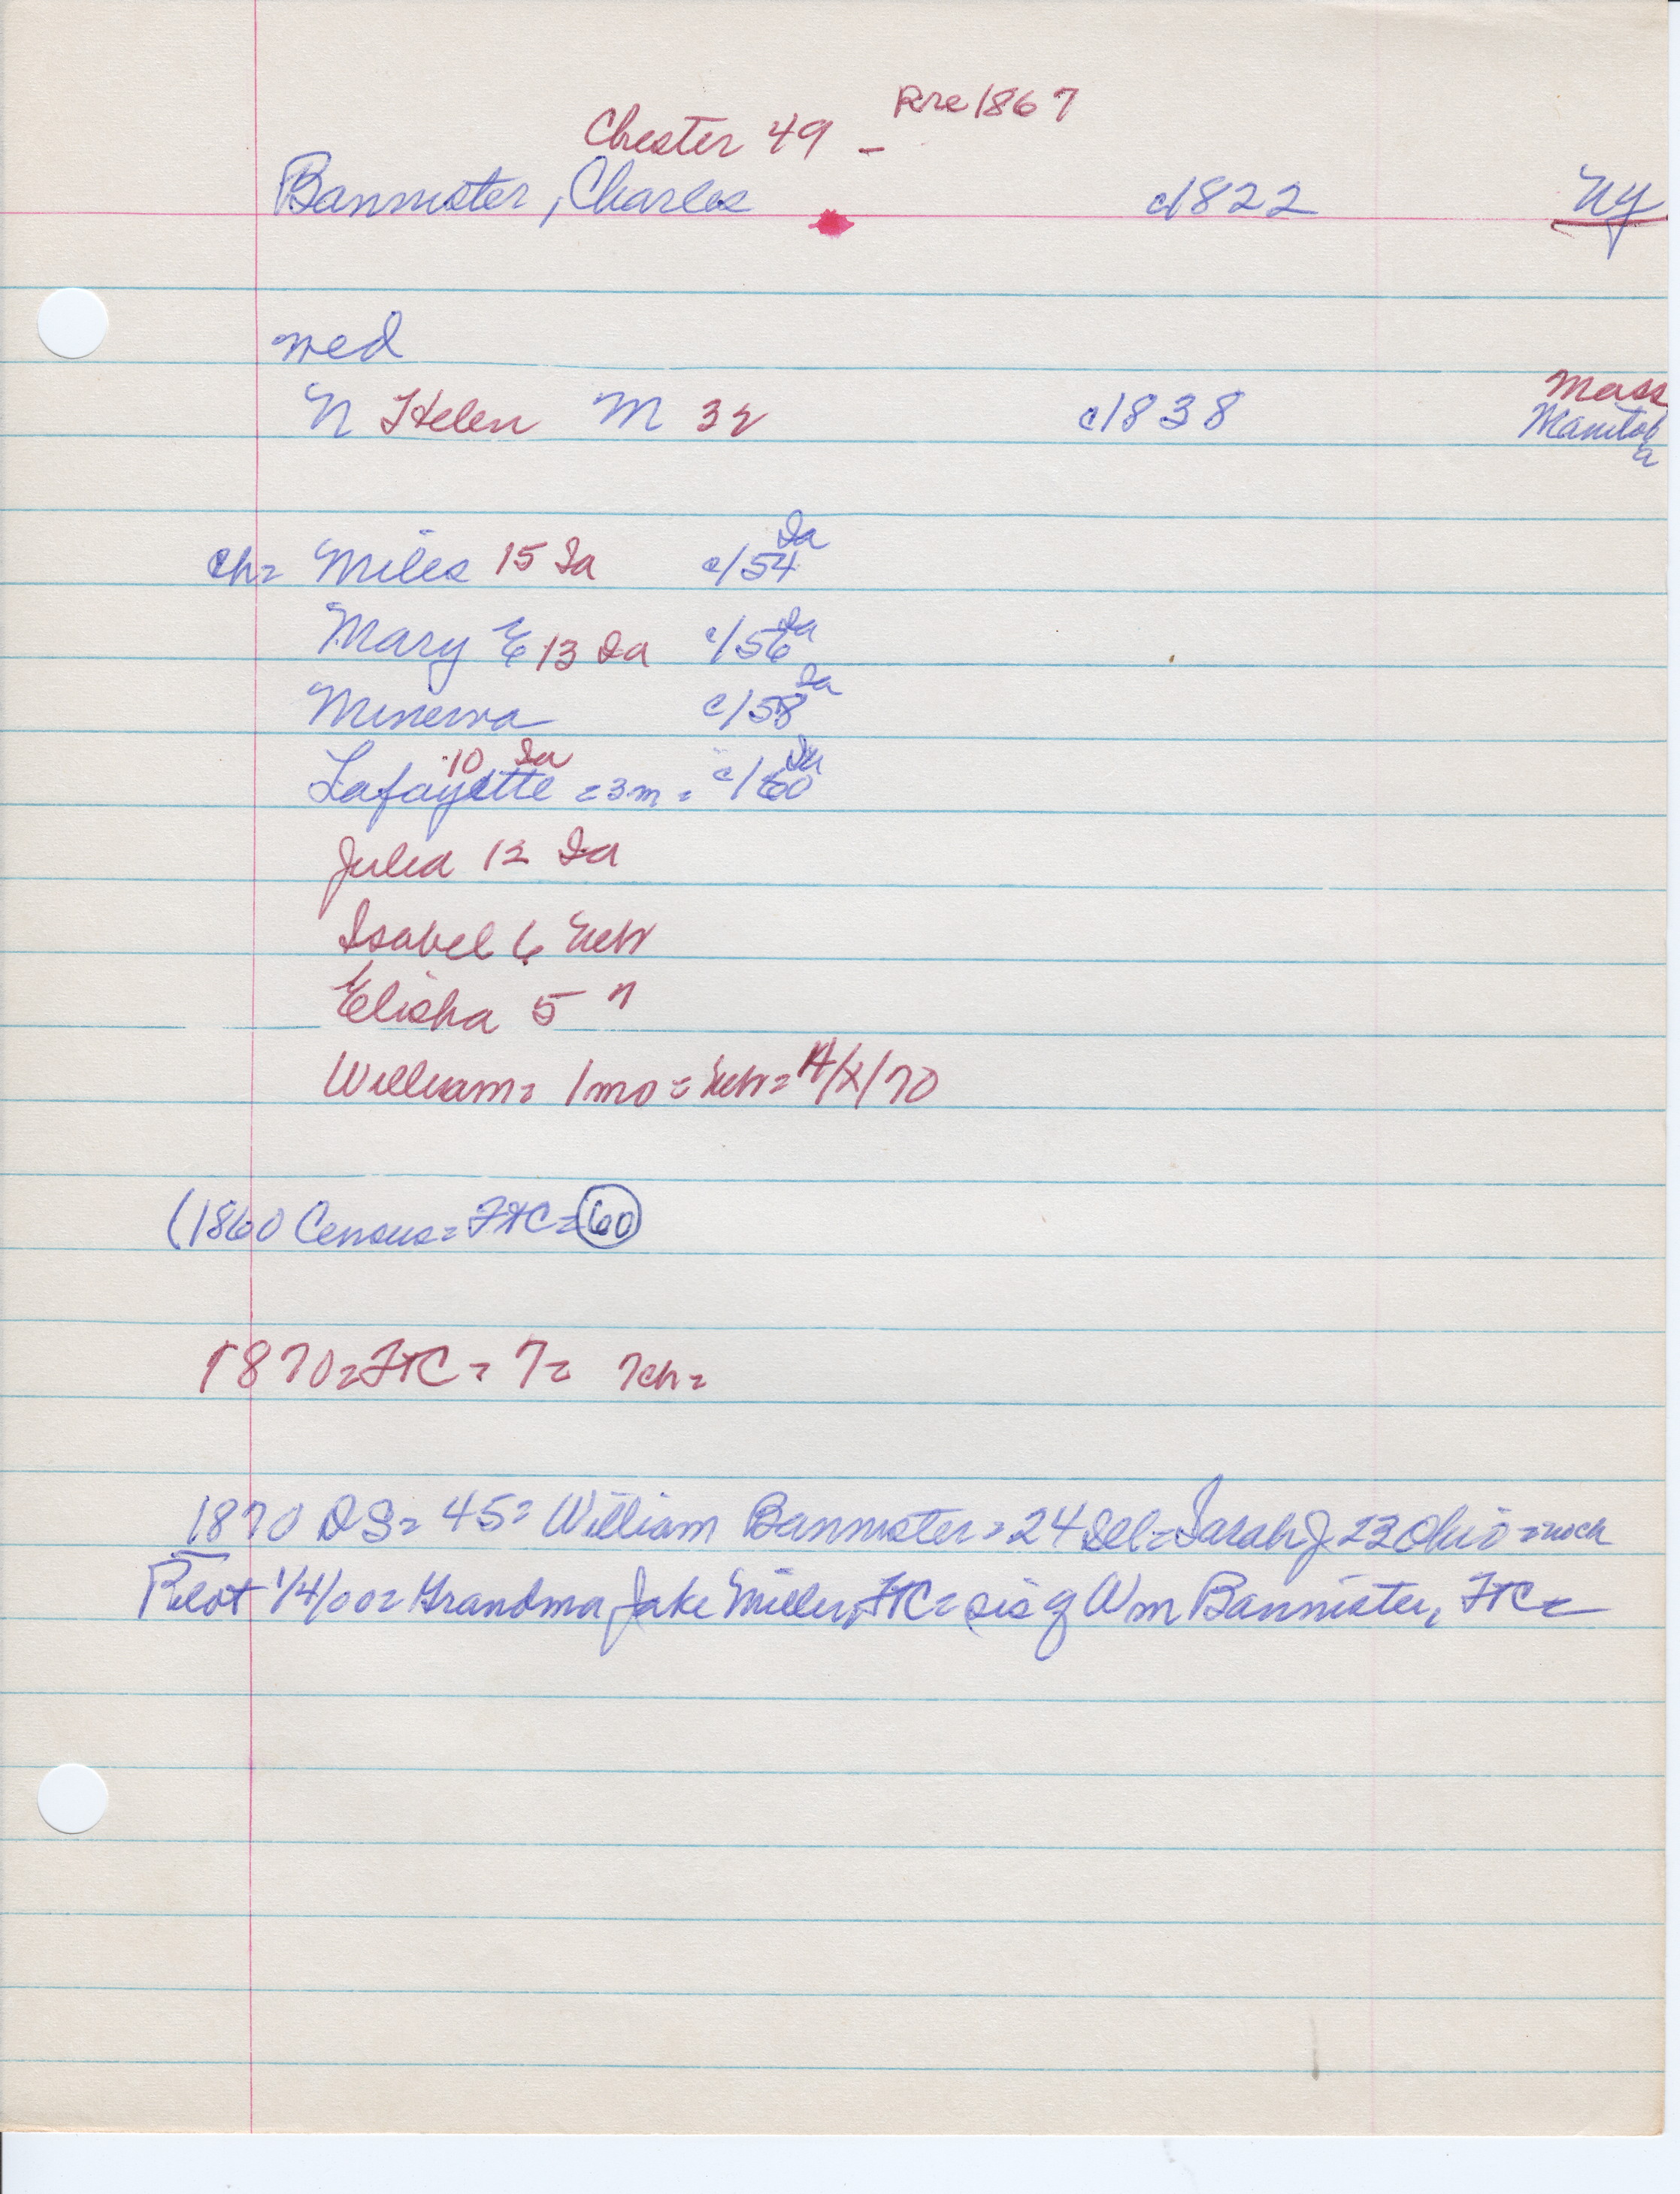 Chester 49 - Pre 1867
Bannister, Charles c1822 NY
med
N Helen M 32 c1838 Mass
Manitoba
ch= Miles 15 Ia c/54 Ia
Mary E 13 Ia c/56 Ia
Minerva c/58 Ia
10 Ia
Lafayette =3m= c/60 Ia
Julia 12 Ia
Isabel 6 Neb
Elisha 5 "
William= 1mo = Neb= A/X/70
(1860 Census= FtC= 60
1870=FtC= 7= 7ch=
1870 DS= 45= William Bannister= 24 Del= Sarah J 23 Ohio =noch
Pilot 1/4/00= Grandma Jake Miller, FtC= sis of Wm Bannister, FtC=